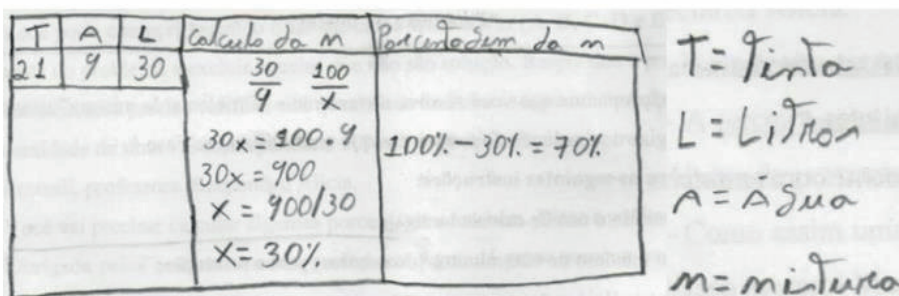 T A L Calculo da m Porcentagem da m
21 9 30 30/9 100/x
30x = 100.9
30x = 900
x = 900/30
x = 30%
100% - 30% = 70%
T = Tinta
L = Litros
A = Agua
m = mistura